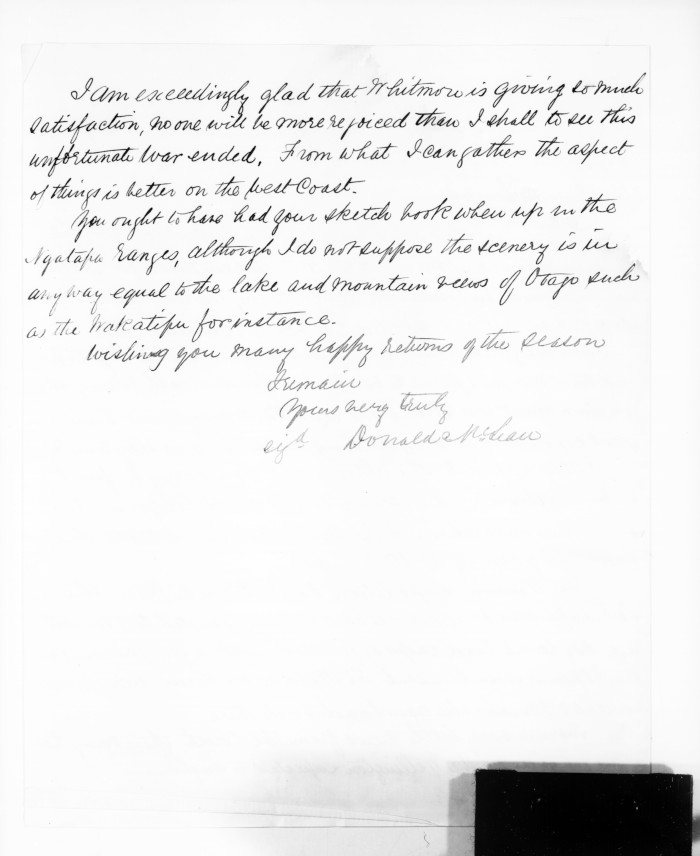 I am exceedingly glad that Whitmore is giving so much
satisfaction, no one will be more rejoiced than I shall to see this
unfortunate War ended. From what I can gather the aspect
of things is better on the West Coast.
You ought to have had your sketch book when up in the
Ngatapa Ranges, although I do not suppose the scenery is in
any way equal to the lake and mountain views of Otago such
as the Wakatipu for instance.
Wishing you many happy returns of the season
I remain
Yours very truly
sigd Donald McLean